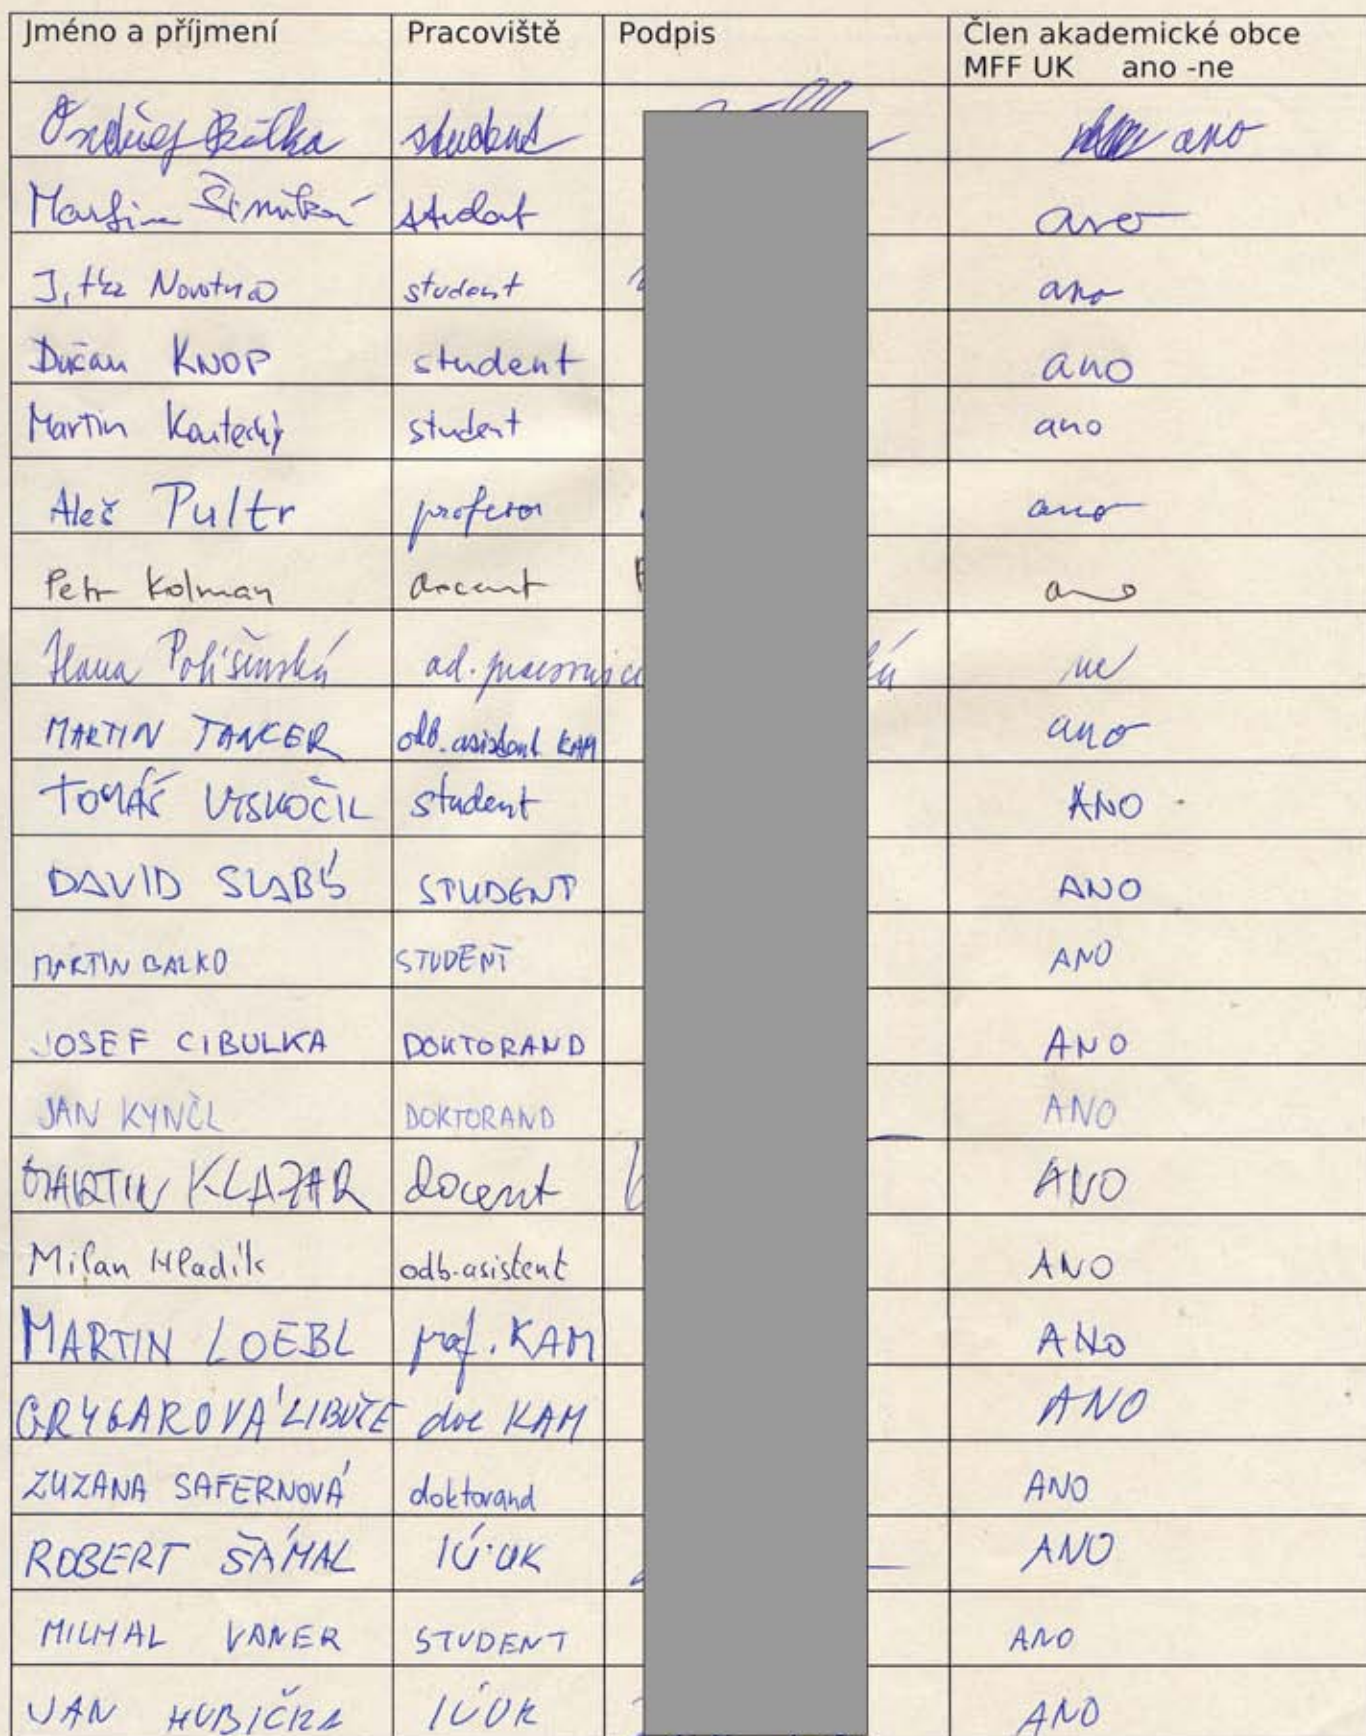 Jméno a příjmení Pracoviště Podpis Člen akademické obce
MFF UK ano -ne
Ondřej Bílka student ano
Martin student ano
Jitka Novotná student ano
Dušan KNOP student ano
Martin Koutecký student ano
Aleš Pultr profesor ano
Petr Kolman docent ano
Hana Polišenská ad. pracovnice ne
MARTIN TANCER odb. asistent KAM ano
TOMÁŠ VYSKOČIL student ANO
DAVID SLABÝ STUDENT ANO
MARTIN BALKO STUDENT ANO
JOSEF CIBULKA DOKTORAND ANO
JAN KYNČL DOKTORAND ANO
MARTIN KLAZAR docent ANO
Milan Hladík odb. asistent ANO
MARTIN LOEBL prof. KAM ANO
GRYGAROVÁ LIBUŠE doc KAM ANO
ZUZANA SAFERNOVÁ doktorand ANO
ROBERT ŠÁMAL IÚUK ANO
MICHAL VANER STUDENT ANO
JAN HUBIČKA IÚUK ANO